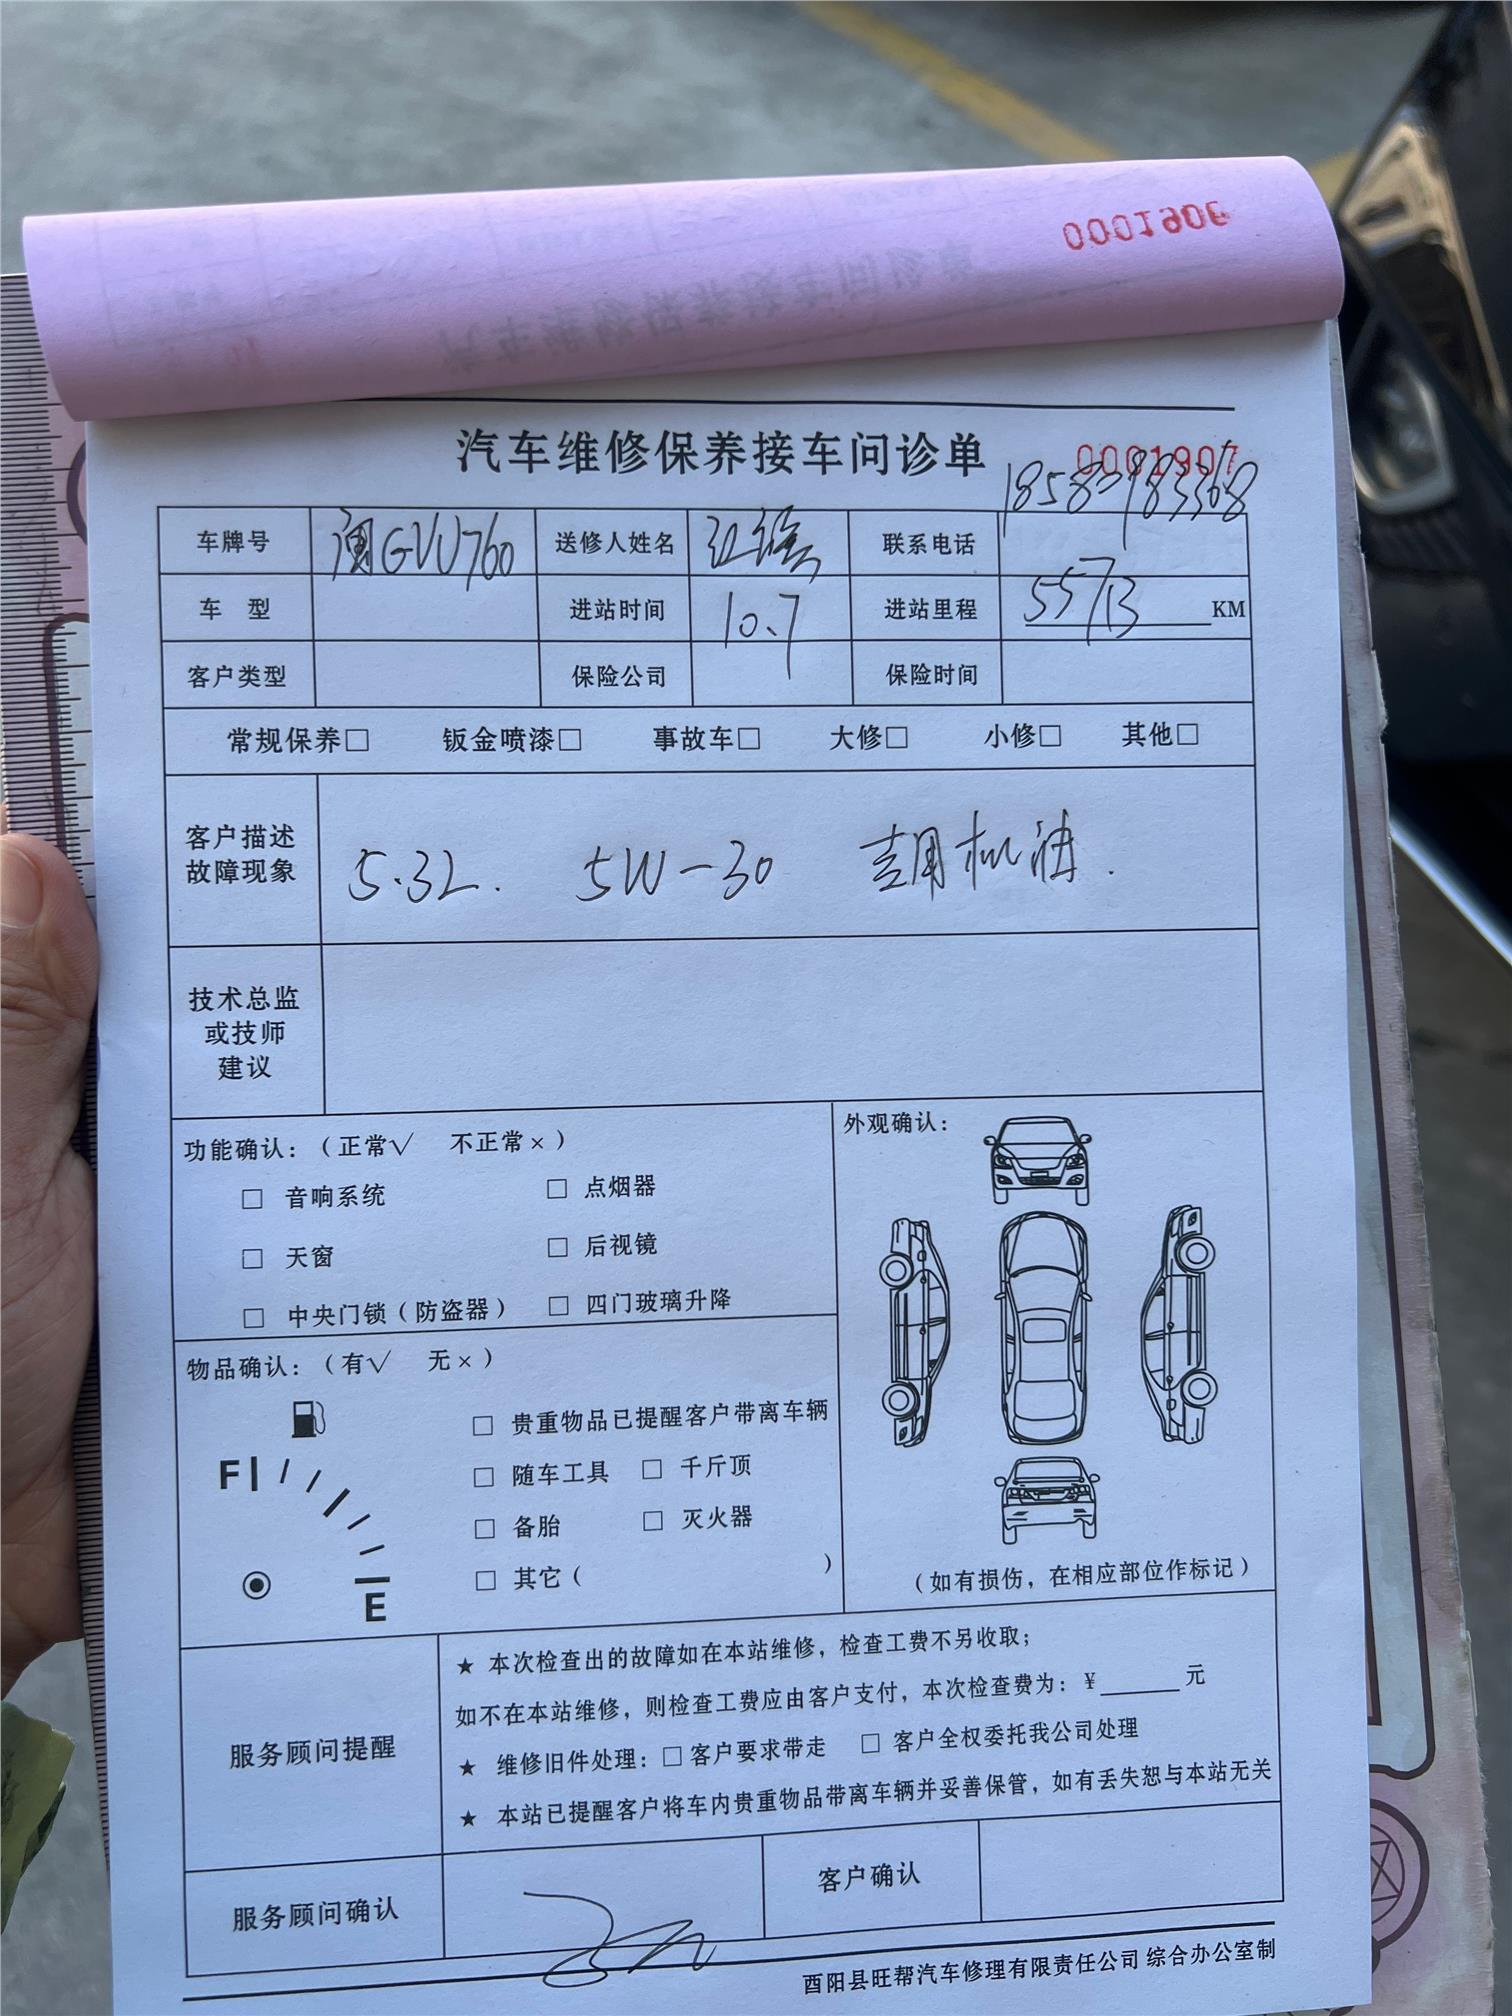 0001906
汽车维修保养接车问诊单
0001907
车牌号 GVU760 送修人姓名 联系电话
车 型 进站时间 10.7 进站里程 55713 KM
客户类型 保险公司 保险时间
常规保养□ 钣金喷漆□ 事故车□ 大修□ 小修□ 其他□
客户描述
故障现象
5.3L. 5W-30 机油.
技术总监
或技师
建议
功能确认：（正常√ 不正常×）
□ 音响系统 □ 点烟器
□ 天窗 □ 后视镜
□ 中央门锁（防盗器） □ 四门玻璃升降
外观确认：
（如有损伤，在相应部位作标记）
物品确认：（有√ 无×）
F
E
□ 贵重物品已提醒客户带离车辆
□ 随车工具 □ 千斤顶
□ 备胎 □ 灭火器
□ 其它（ ）
服务顾问提醒
★ 本次检查出的故障如在本站维修，检查工费不另收取；
如不在本站维修，则检查工费应由客户支付，本次检查费为：¥______元
★ 维修旧件处理：□ 客户要求带走 □ 客户全权委托我公司处理
★ 本站已提醒客户将车内贵重物品带离车辆并妥善保管，如有丢失恕与本站无关
服务顾问确认 客户确认
酉阳县旺帮汽车修理有限责任公司 综合办公室制